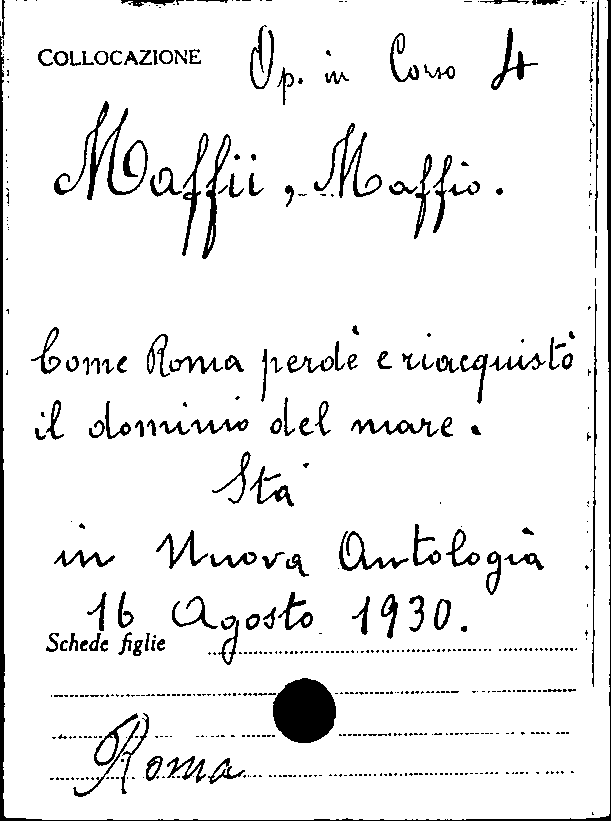 COLLOCAZIONE Op. in Corso 4
Maffii, Maffio.
Come Roma perdè e riacquistò
il dominio del mare.
Sta
in Nuova Antologia
16 Agosto 1930.
Schede figlie
Roma